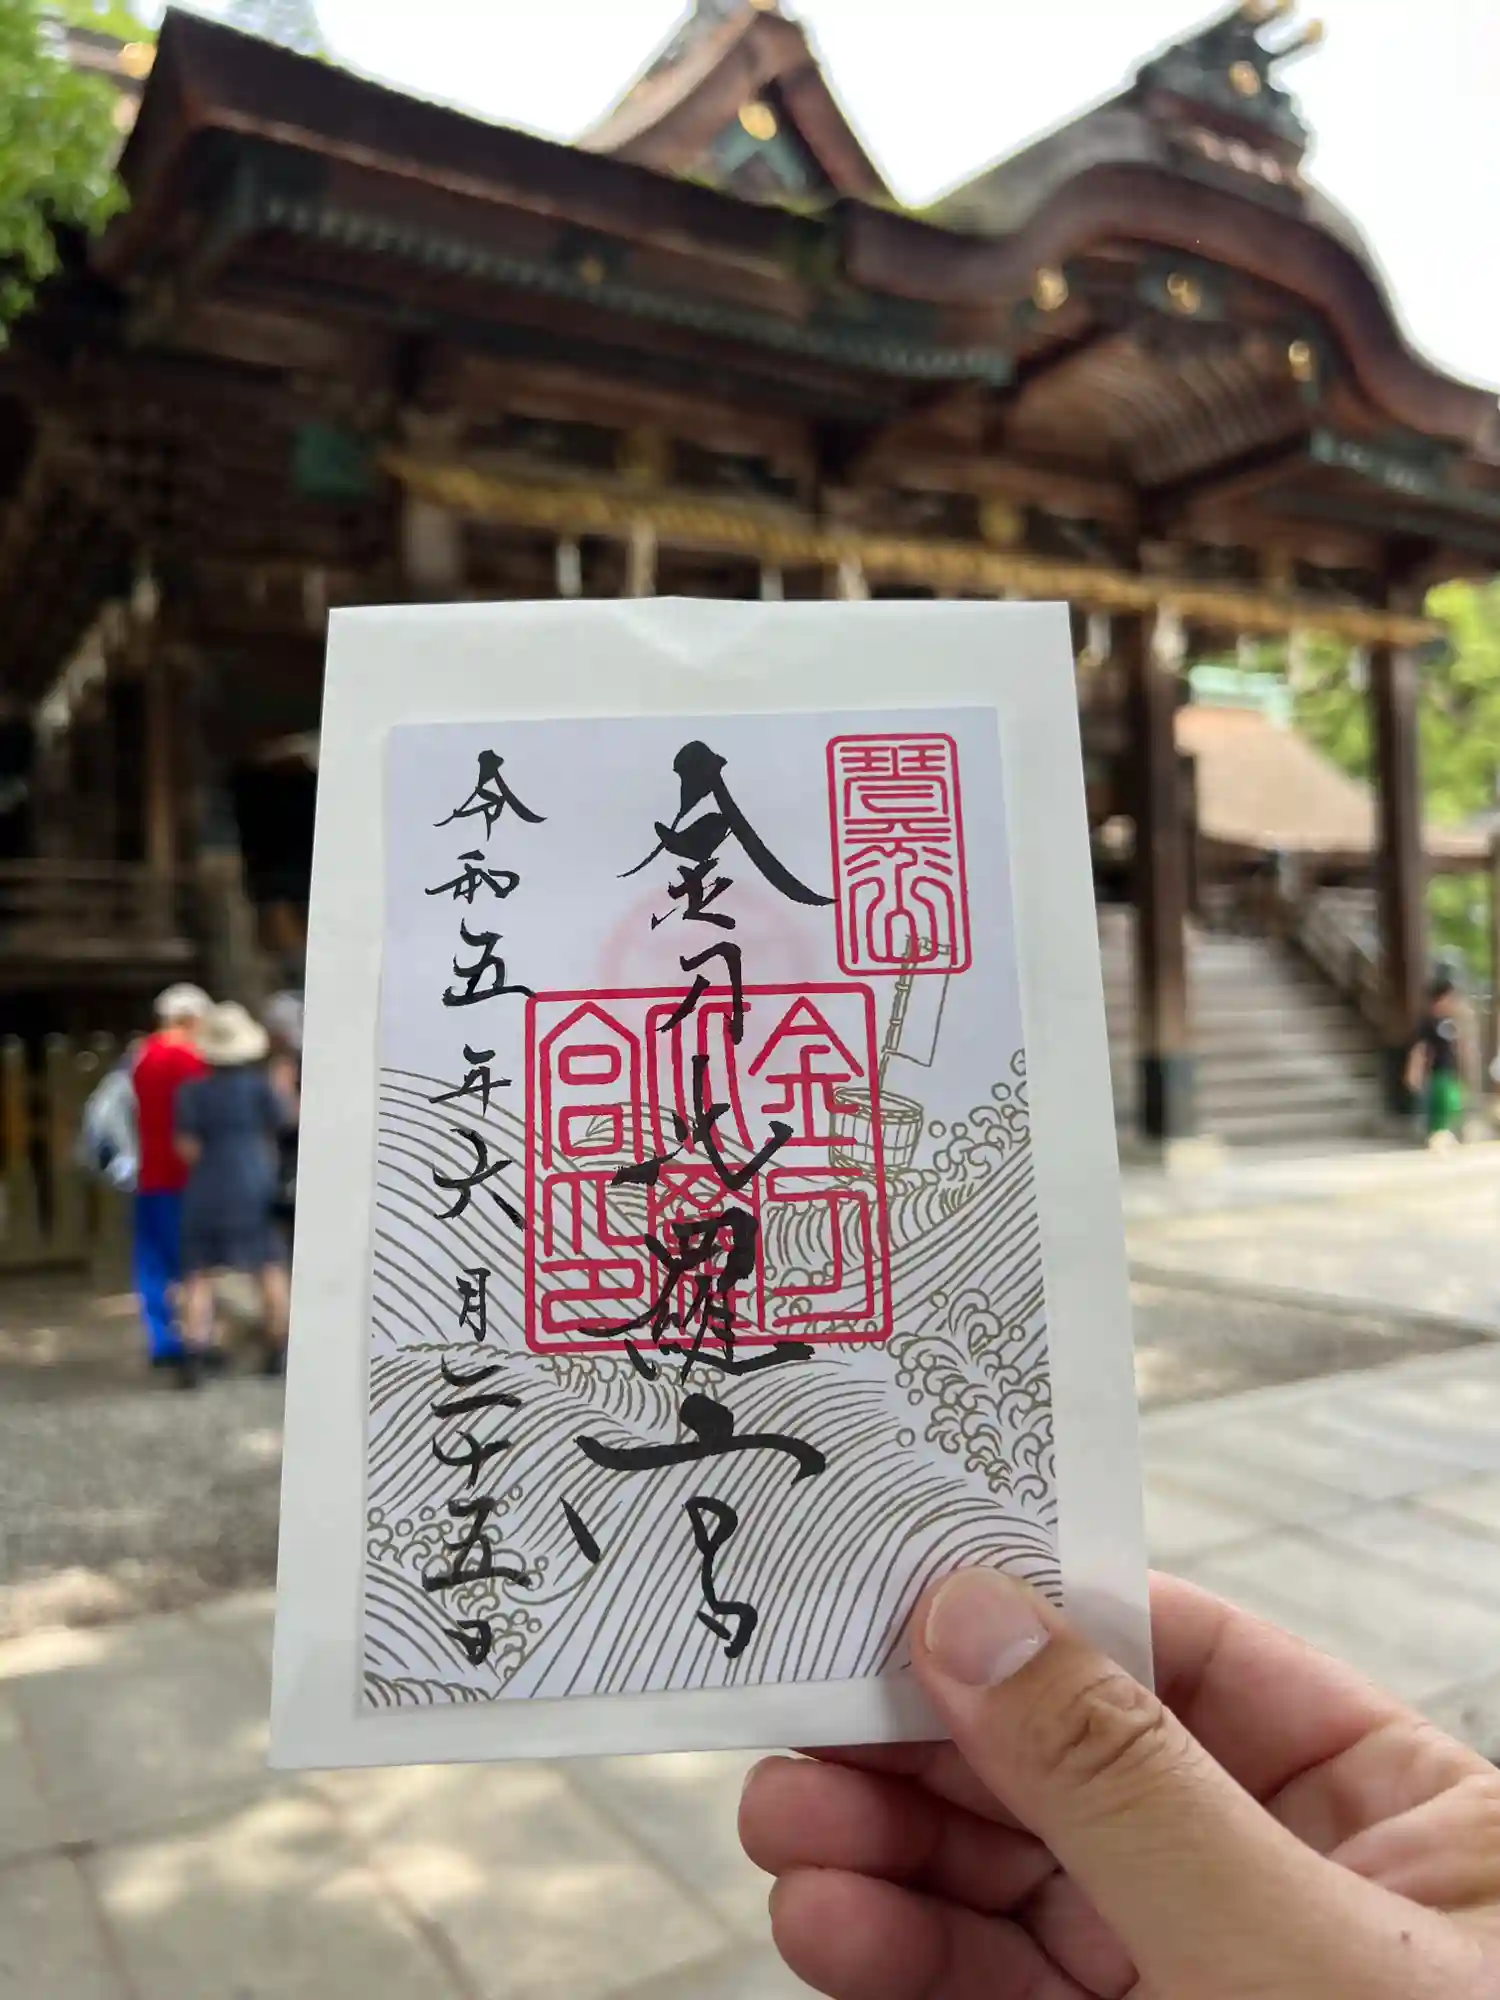 琴平山
金刀比羅宮
金刀比羅宮印
令和五年六月二十五日